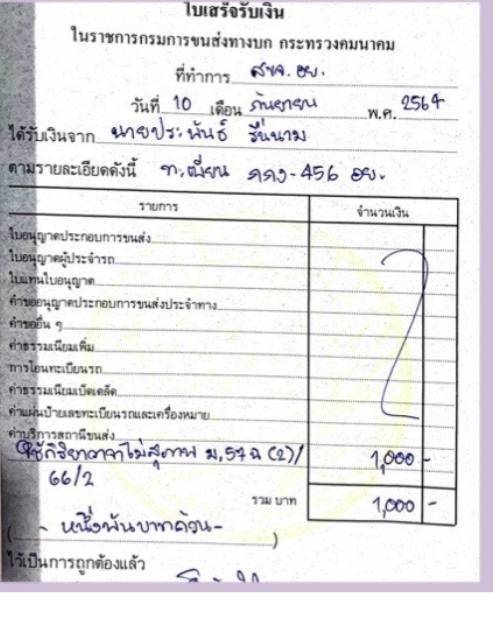 ใบเสร็จรับเงิน
ในราชการกรมการขนส่งทางบก กระทรวงคมนาคม
ที่ทำการ สขจ. อย.
วันที่ 10 เดือน กันยายน พ.ศ. 2564
ได้รับเงินจาก นายประพันธ์ รื่นนาม
ตามรายละเอียดดังนี้ ท.เบียน -456 อย.
รายการ จำนวนเงิน
ใบอนุญาตประกอบการขนส่ง
ใบอนุญาตผู้ประจำรถ
ใบแทนใบอนุญาต
คำขออนุญาตประกอบการขนส่งประจำทาง
คำขออื่น ๆ
ค่าธรรมเนียมเพิ่ม
การโอนทะเบียนรถ
ค่าธรรมเนียมเบ็ดเตล็ด
ค่าแผ่นป้ายเลขทะเบียนรถและเครื่องหมาย
ค่าบริการสถานีขนส่ง
ใช้กิริยาวาจาไม่สุภาพ ม.57 ฉ (2)/ 1,000 -
66/2
รวม บาท 1,000 -
( - หนึ่งพันบาทถ้วน - )
ไว้เป็นการถูกต้องแล้ว